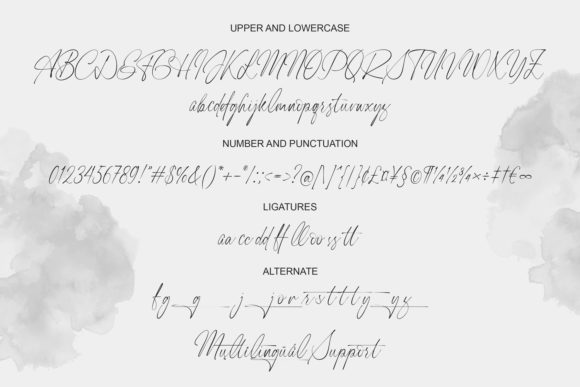 UPPER AND LOWERCASE
ABCDEFGHIJKLMNOPQRSTUVWXYZ
abcddfghijklmnopqrstuvwxyz
NUMBER AND PUNCTUATION
0123456789!"#$%&()*+-"/:;<=>?@[\]^{|}¢£¤¥§©¶¼½¾×÷‡†€∞
LIGATURES
aa cc dd ff ll oo ss tt
ALTERNATE
f g _ g _ j _ j o r r s t t t y _ y z _
Multilingüâl Support